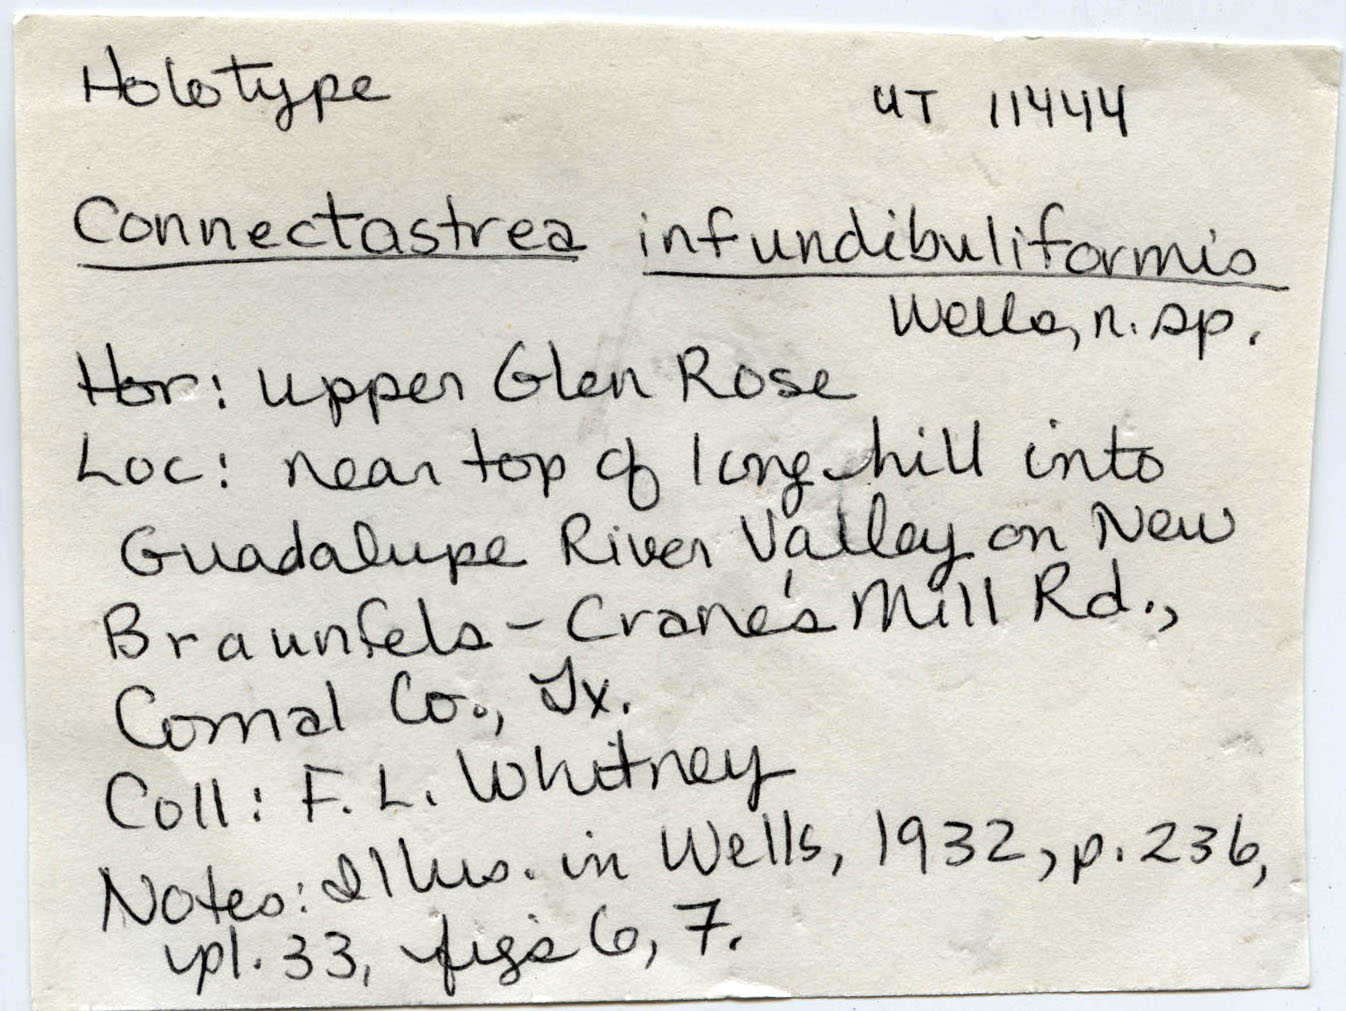 Holotype UT 11444
Connectastrea infundibuliformis
Wells, n. sp.
Hor: upper Glen Rose
Loc: near top of long hill into
Guadalupe River Valley on New
Braunfels - Crane's Mill Rd.,
Comal Co., Tx.
Coll: F. L. Whitney
Notes: Illus. in Wells, 1932, p. 236,
pl. 33, figs 6, 7.